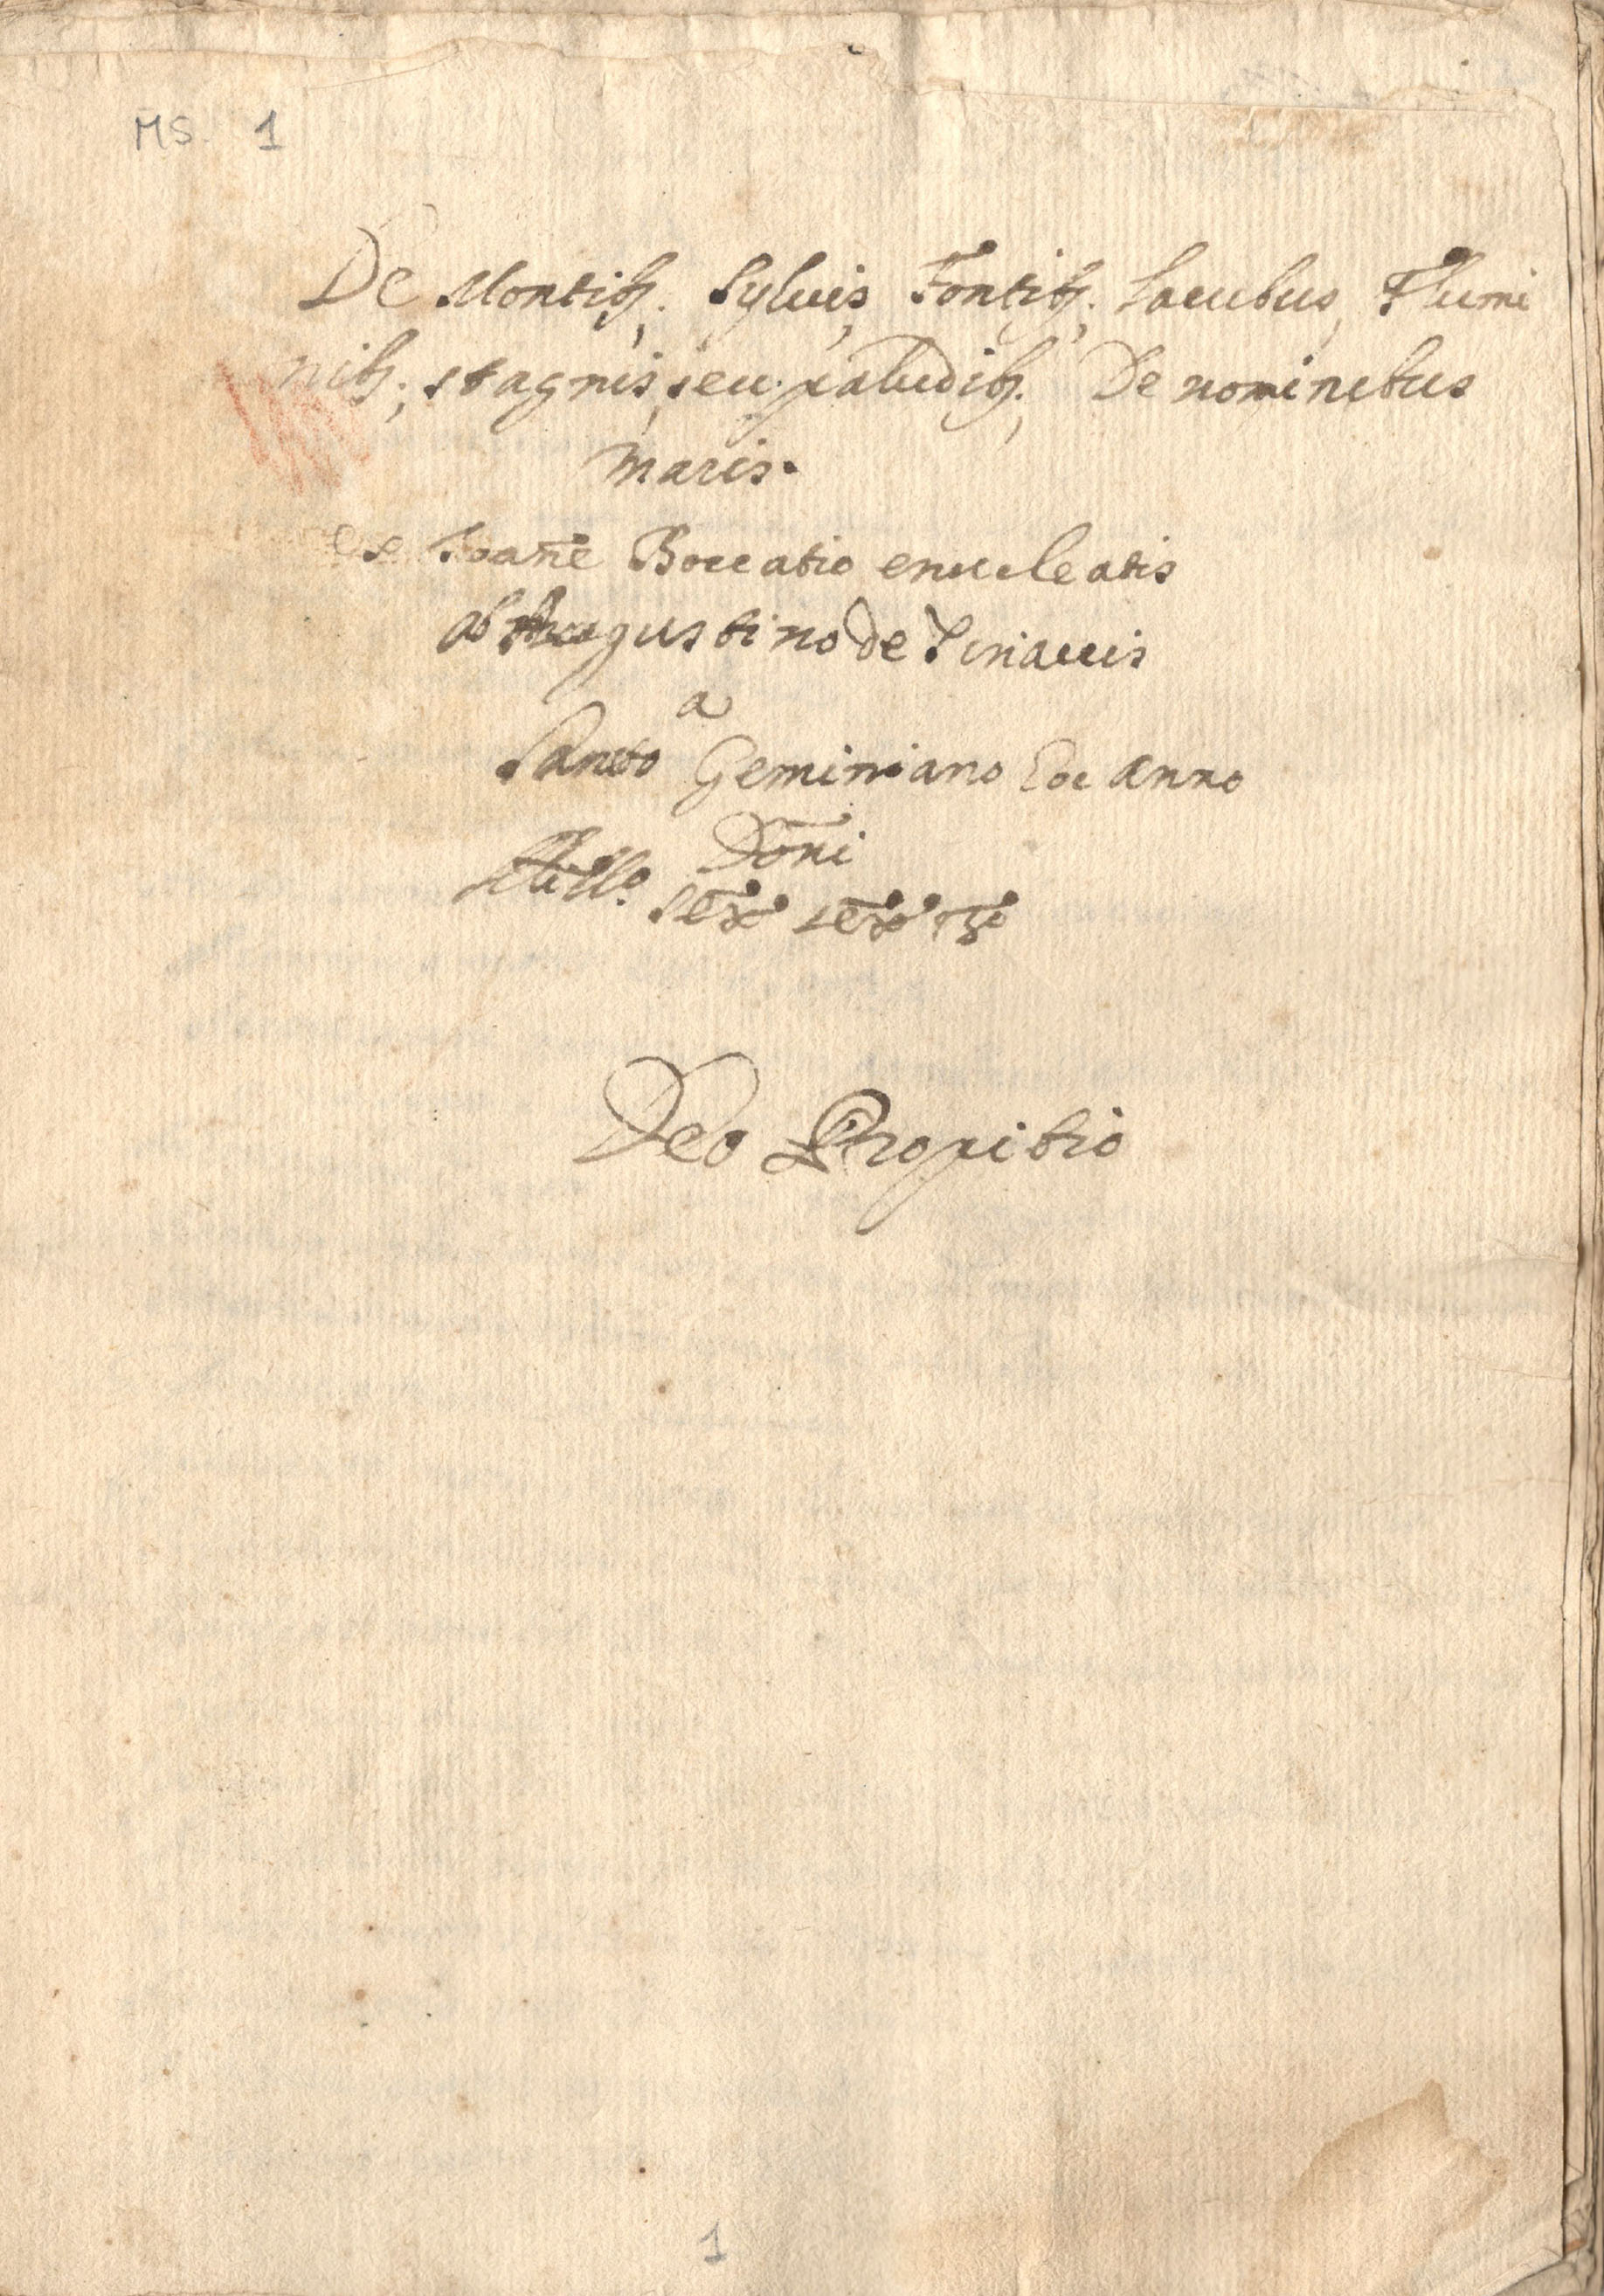 MS. 1
De Montib9. Sylvis, Fontib9. Lacubus, Flumi
nib9., stagnis, seu paludib9. De nominibus
Maris.
ex Ioañe Boccatio enucleatis
ab Augustino de
a
Sancto Geminiano hoc anno
Dōni
Deo Propitio
1